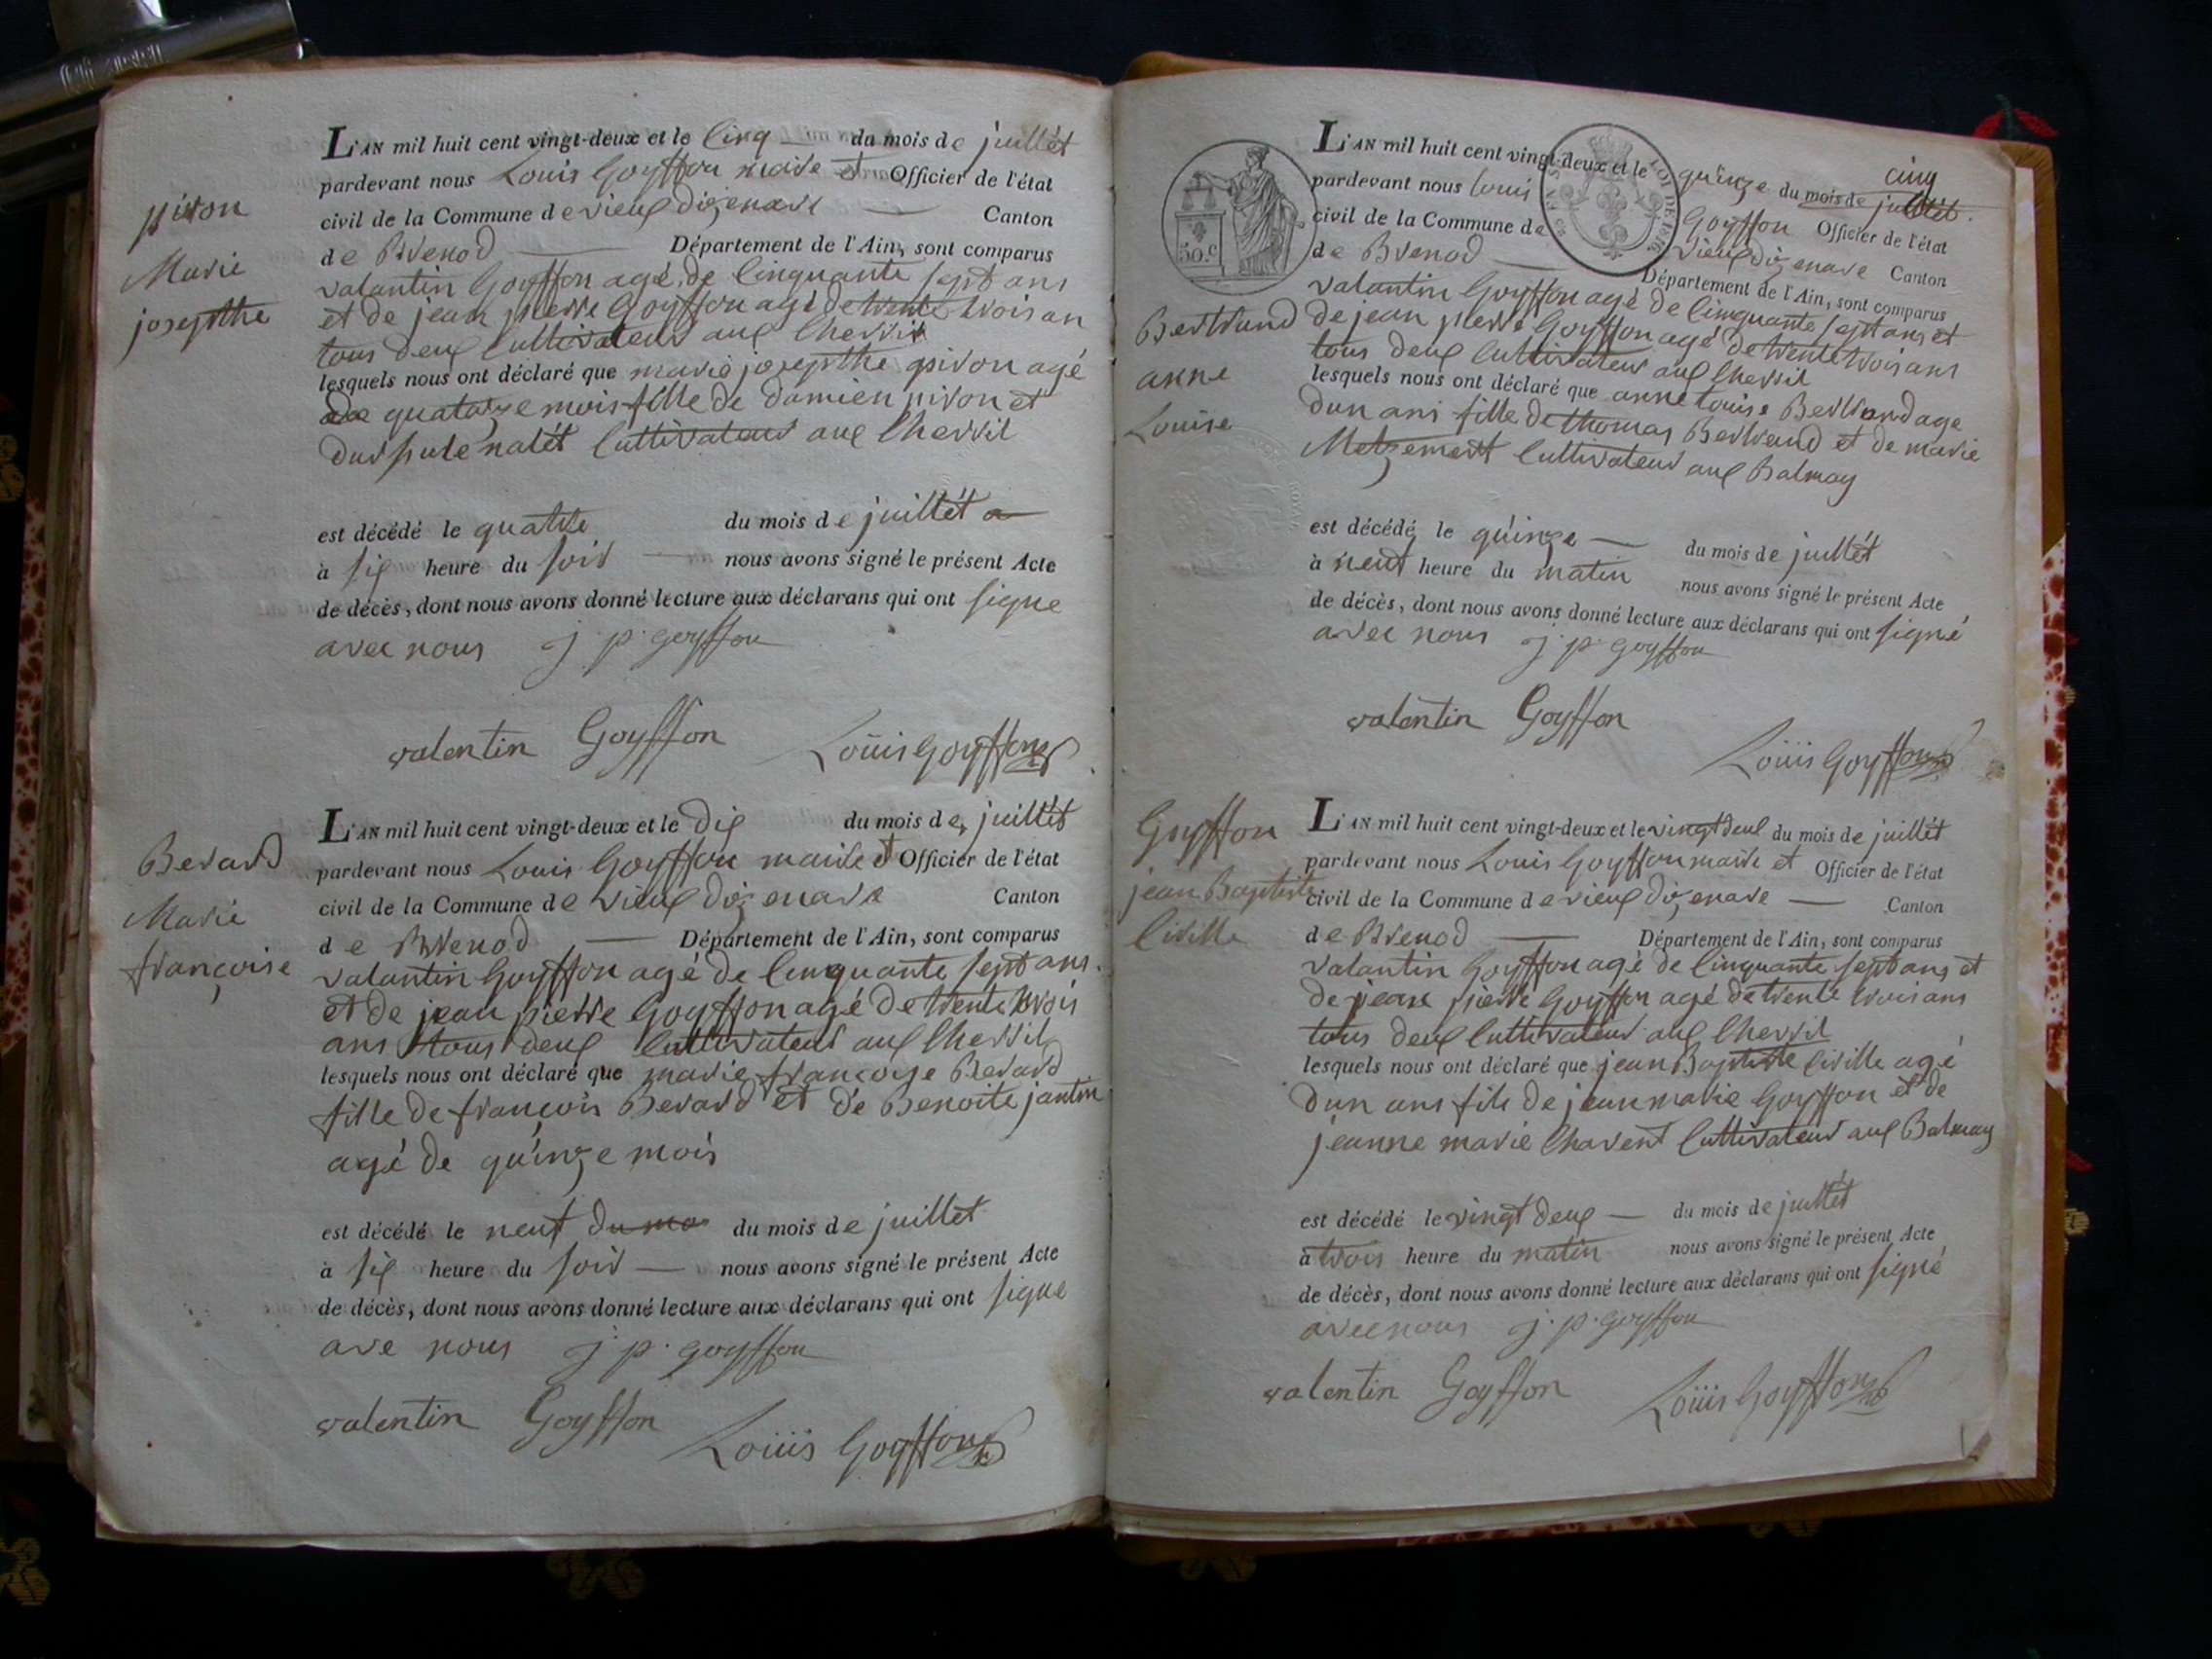 L'AN mil huit cent vingt-deux et le cinq du mois de juillét
pardevant nous Louis Goyffon maire et Officier de l'état
civil de la Commune de vieux dizenave Canton
de Brenod Département de l'Ain, sont comparus
valantin Goyffon agé de cinquante sept ans
et de jean pierre Goyffon agé de trente trois an
tous deux cultivateur aux
lesquels nous ont déclaré que marie josepthe piron agé
de quatorze mois fille de damien piron et
cultivateur aux
est décédé le quatre du mois de juillét a
à six heure du soir nous avons signé le présent Acte
de décès, dont nous avons donné lecture aux déclarans qui ont signe
avec nous j. p. goyffon
valentin Goyffon Loüis Goyffon
piron
Marie
josepthe
L'AN mil huit cent vingt-deux et le dix du mois de juillét
pardevant nous Louis Goyffon maire et Officier de l'état
civil de la Commune de vieux dizenave Canton
de Brenod Département de l'Ain, sont comparus
valantin Goyffon agé de cinquante sept ans.
et de jean pierre Goyffon agé de trente trois
ans tous deux cultivateur aux
lesquels nous ont déclaré que marie françoise Berard
fille de françois Berard et de Benoite jantin
agé de quinze mois
est décédé le neuf du mo du mois de juillet
à six heure du soir nous avons signé le présent Acte
de décès, dont nous avons donné lecture aux déclarans qui ont signe
ave nous j. p. goyffon
valentin Goyffon Loüis Goyffon
Berard
Marie
françoise
50.C
LOI DE 1816
L'AN mil huit cent vingt-deux et le quinze du mois de juillét
cinq
pardevant nous Louis Goyffon Officier de l'état
civil de la Commune de vieux dizenave Canton
de Brenod Département de l'Ain, sont comparus
valantin Goyffon agé de cinquante sept ans et
de jean pierre Goyffon agé de trente trois ans
tous deux cultivateur aux
lesquels nous ont déclaré que anne Louise Bertrand age
dun ans fille de thomas Bertrand et de marie
cultivateur aux Balmay
est décédé le quinze du mois de juillét
à neuf heure du matin nous avons signé le présent Acte
de décès, dont nous avons donné lecture aux déclarans qui ont signé
avec nous j. p. goyffon
valentin Goyffon
Loüis Goyffon
Bertrand
anne
Louise
L'AN mil huit cent vingt-deux et le vingt deux du mois de juillét
pardevant nous Louis Goyffon maire et Officier de l'état
civil de la Commune de vieux dizenave Canton
de Brenod Département de l'Ain, sont comparus
valantin Goyffon agé de cinquante sept ans et
de jean pierre Goyffon agé de trente trois ans
tous deux cultivateur aux
lesquels nous ont déclaré que jean Baptiste Cirille agé
dun ans fils de jean marie Goyffon et de
jeanne marie Charent cultivateur aux Balmay
est décédé le vingt deux du mois de juillét
à trois heure du matin nous avons signé le présent Acte
de décès, dont nous avons donné lecture aux déclarans qui ont signé
avec nous j. p. goyffon
valentin Goyffon Loüis Goyffon
Goyffon
jean Baptiste
Cirille